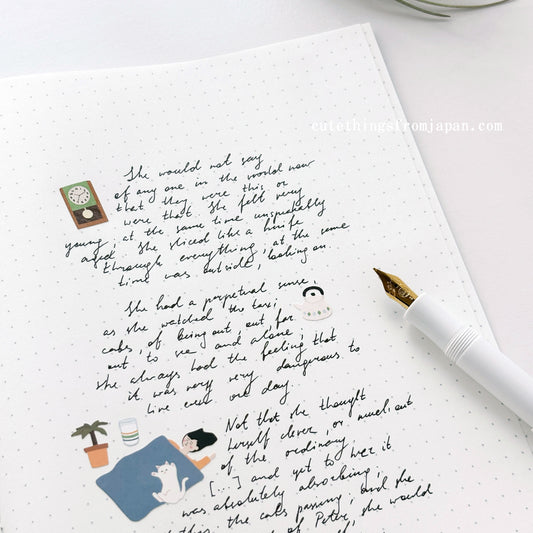 cutethingsfromjapan.com
She would not say
of any one in the world now
that they were this or
were that. She felt very
young; at the same time unspeakably
aged. She sliced like a knife
through everything; at the same
time was outside, looking on.
She had a perpetual sense,
as she watched the taxi
cabs, of being out, out, far
out to sea and alone;
she always had the feeling that
it was very, very dangerous to
live even one day.
Not that she thought
herself clever, or much out
of the ordinary.
[...] and yet to her it
was absolutely absorbing;
this; the cabs passing; and she
of Peter, she would